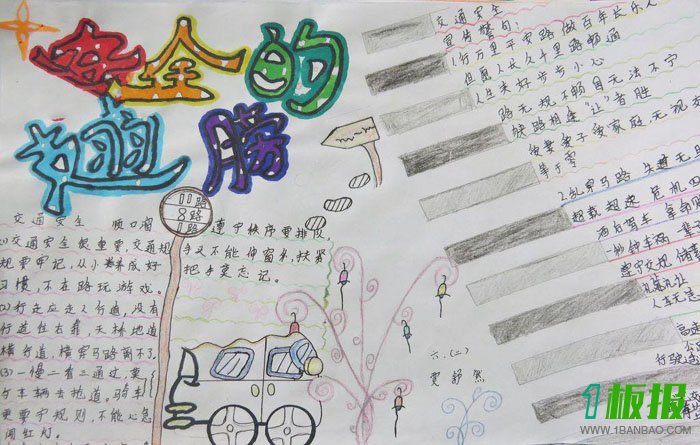 安全的
交通 榜
11路
8路
1路
交通安全 顺口溜
(1)交通安全很重要,交通规
规要牢记,从小养成好
习惯,不在路玩游戏。
(2)行走应走人行道,没有
行道往右靠,天桥地道
横行道,横穿马路
(3)一慢二看三通过,莫
行车辆去抢道。骑车
更要守规则,不能心急
闯红灯。
遵守秩序要排队,
手又不能伸窗来,扶紧
把手莫忘记。
六.(二)
贾舒然
交通安全
宣传警句:
1.行万里平安路做百年长乐人
但愿人长久千里路畅通
人生美好步步小心
路无规不畅国无法不宁
狭路相逢"让"者胜
等于零
2.乱穿马路 失建无
超载超速 危机四
酒后驾车 拿命
一秒钟车祸
遵守交规 储蓄
礼莫礼让
人车无
高速
行驶
1板报
WWW.1BANBAO.COM